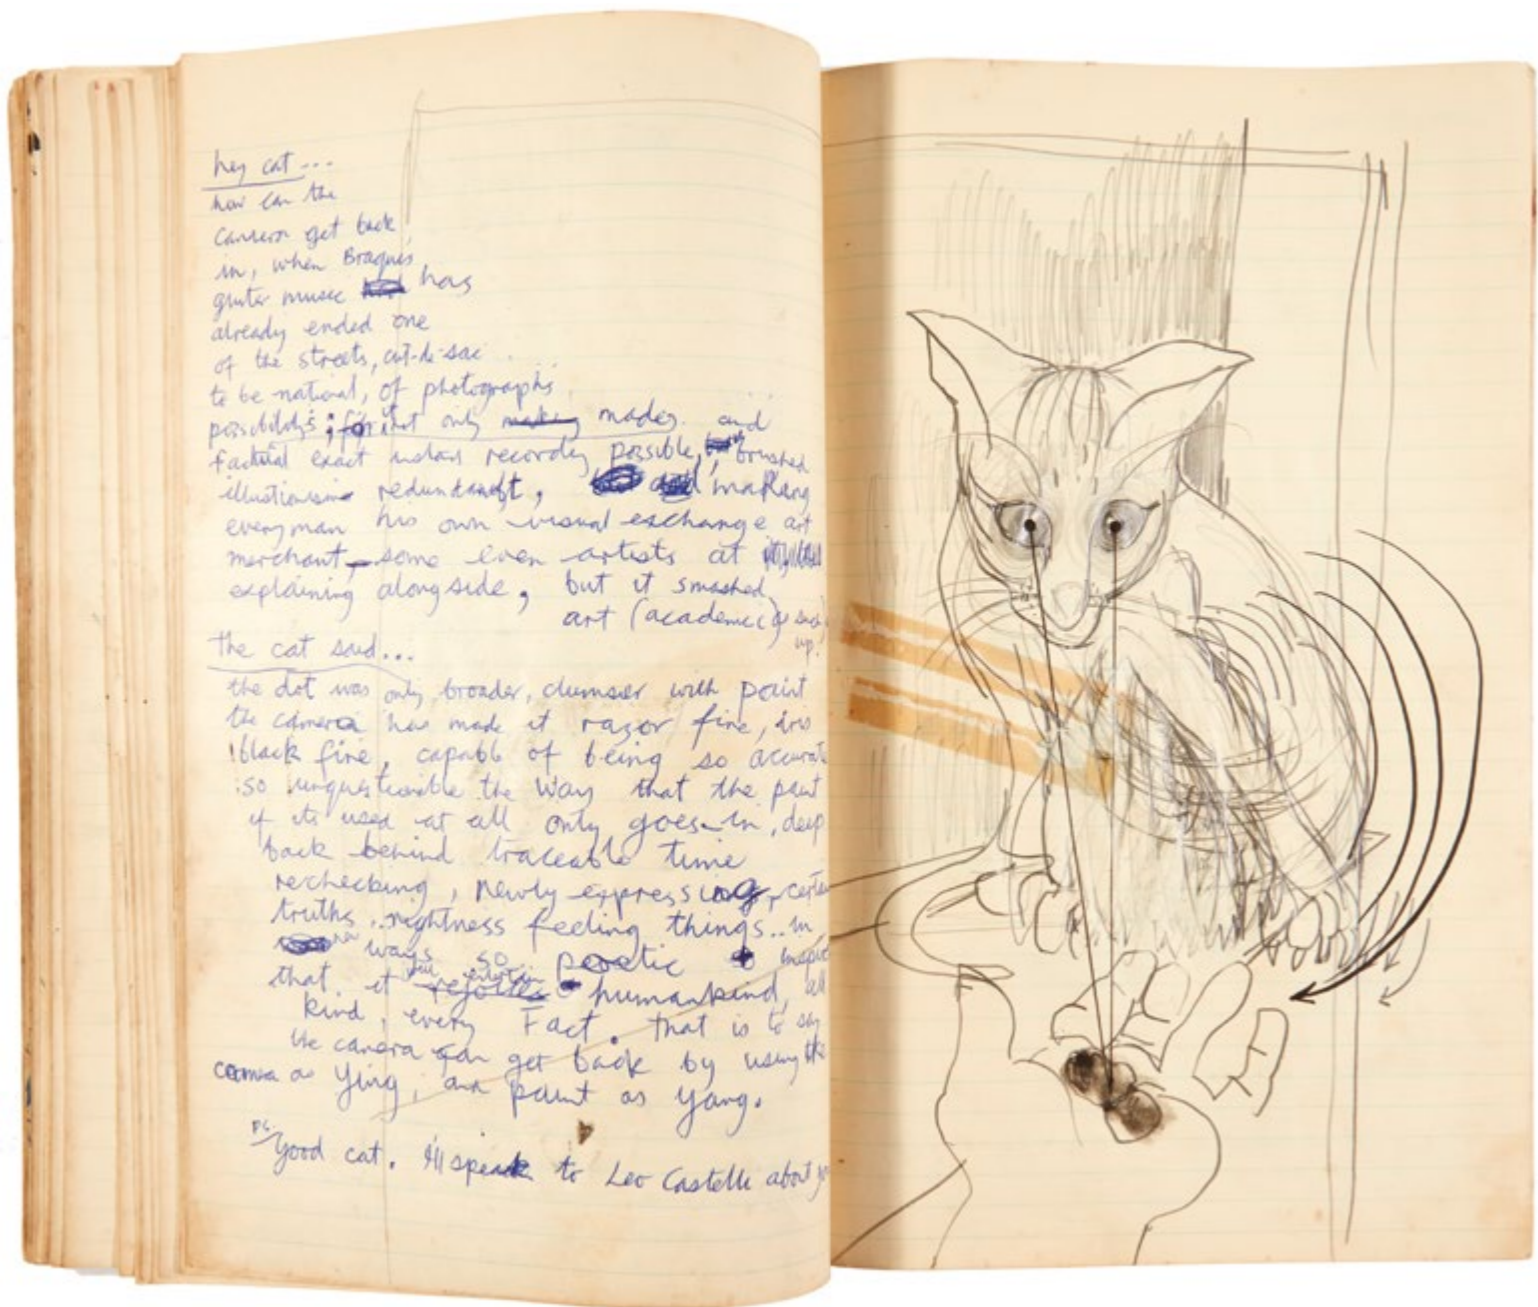 hey cat...
how can the
camera get back
in, when Braques
guiter music has
already ended one
of the streets, cut-de-sac
to be natural, of photographs
possibilitys; for it not only mades and
factual exact instant recording possible, brushed
illustionism redundant, making
everyman his own visual exchange art
merchant, some even artists at
explaining alongside, but it smashed
art (academic) as such
up!
the cat said...
the dot was only broader, clumsier with paint
the camera has made it razor fine, iris
black fine, capable of being so accurate
so unquestionable the way that the paint
if its used at all only goes-in, deep
back behind traceable time
rechecking, newly expressing, certain
truths.. rightness feeling things.. in
ways so poetic
that it humankind, all
kind, every Fact. that is to say
the camera can get back by using the
camera as Ying, an paint as yang.
PS
Good cat. I'll speak to Leo Castelle about